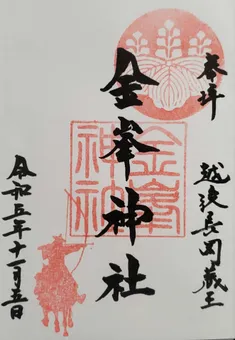 奉拝
越後長岡蔵王
金峯神社
金峯
神社
令和五年十一月五日